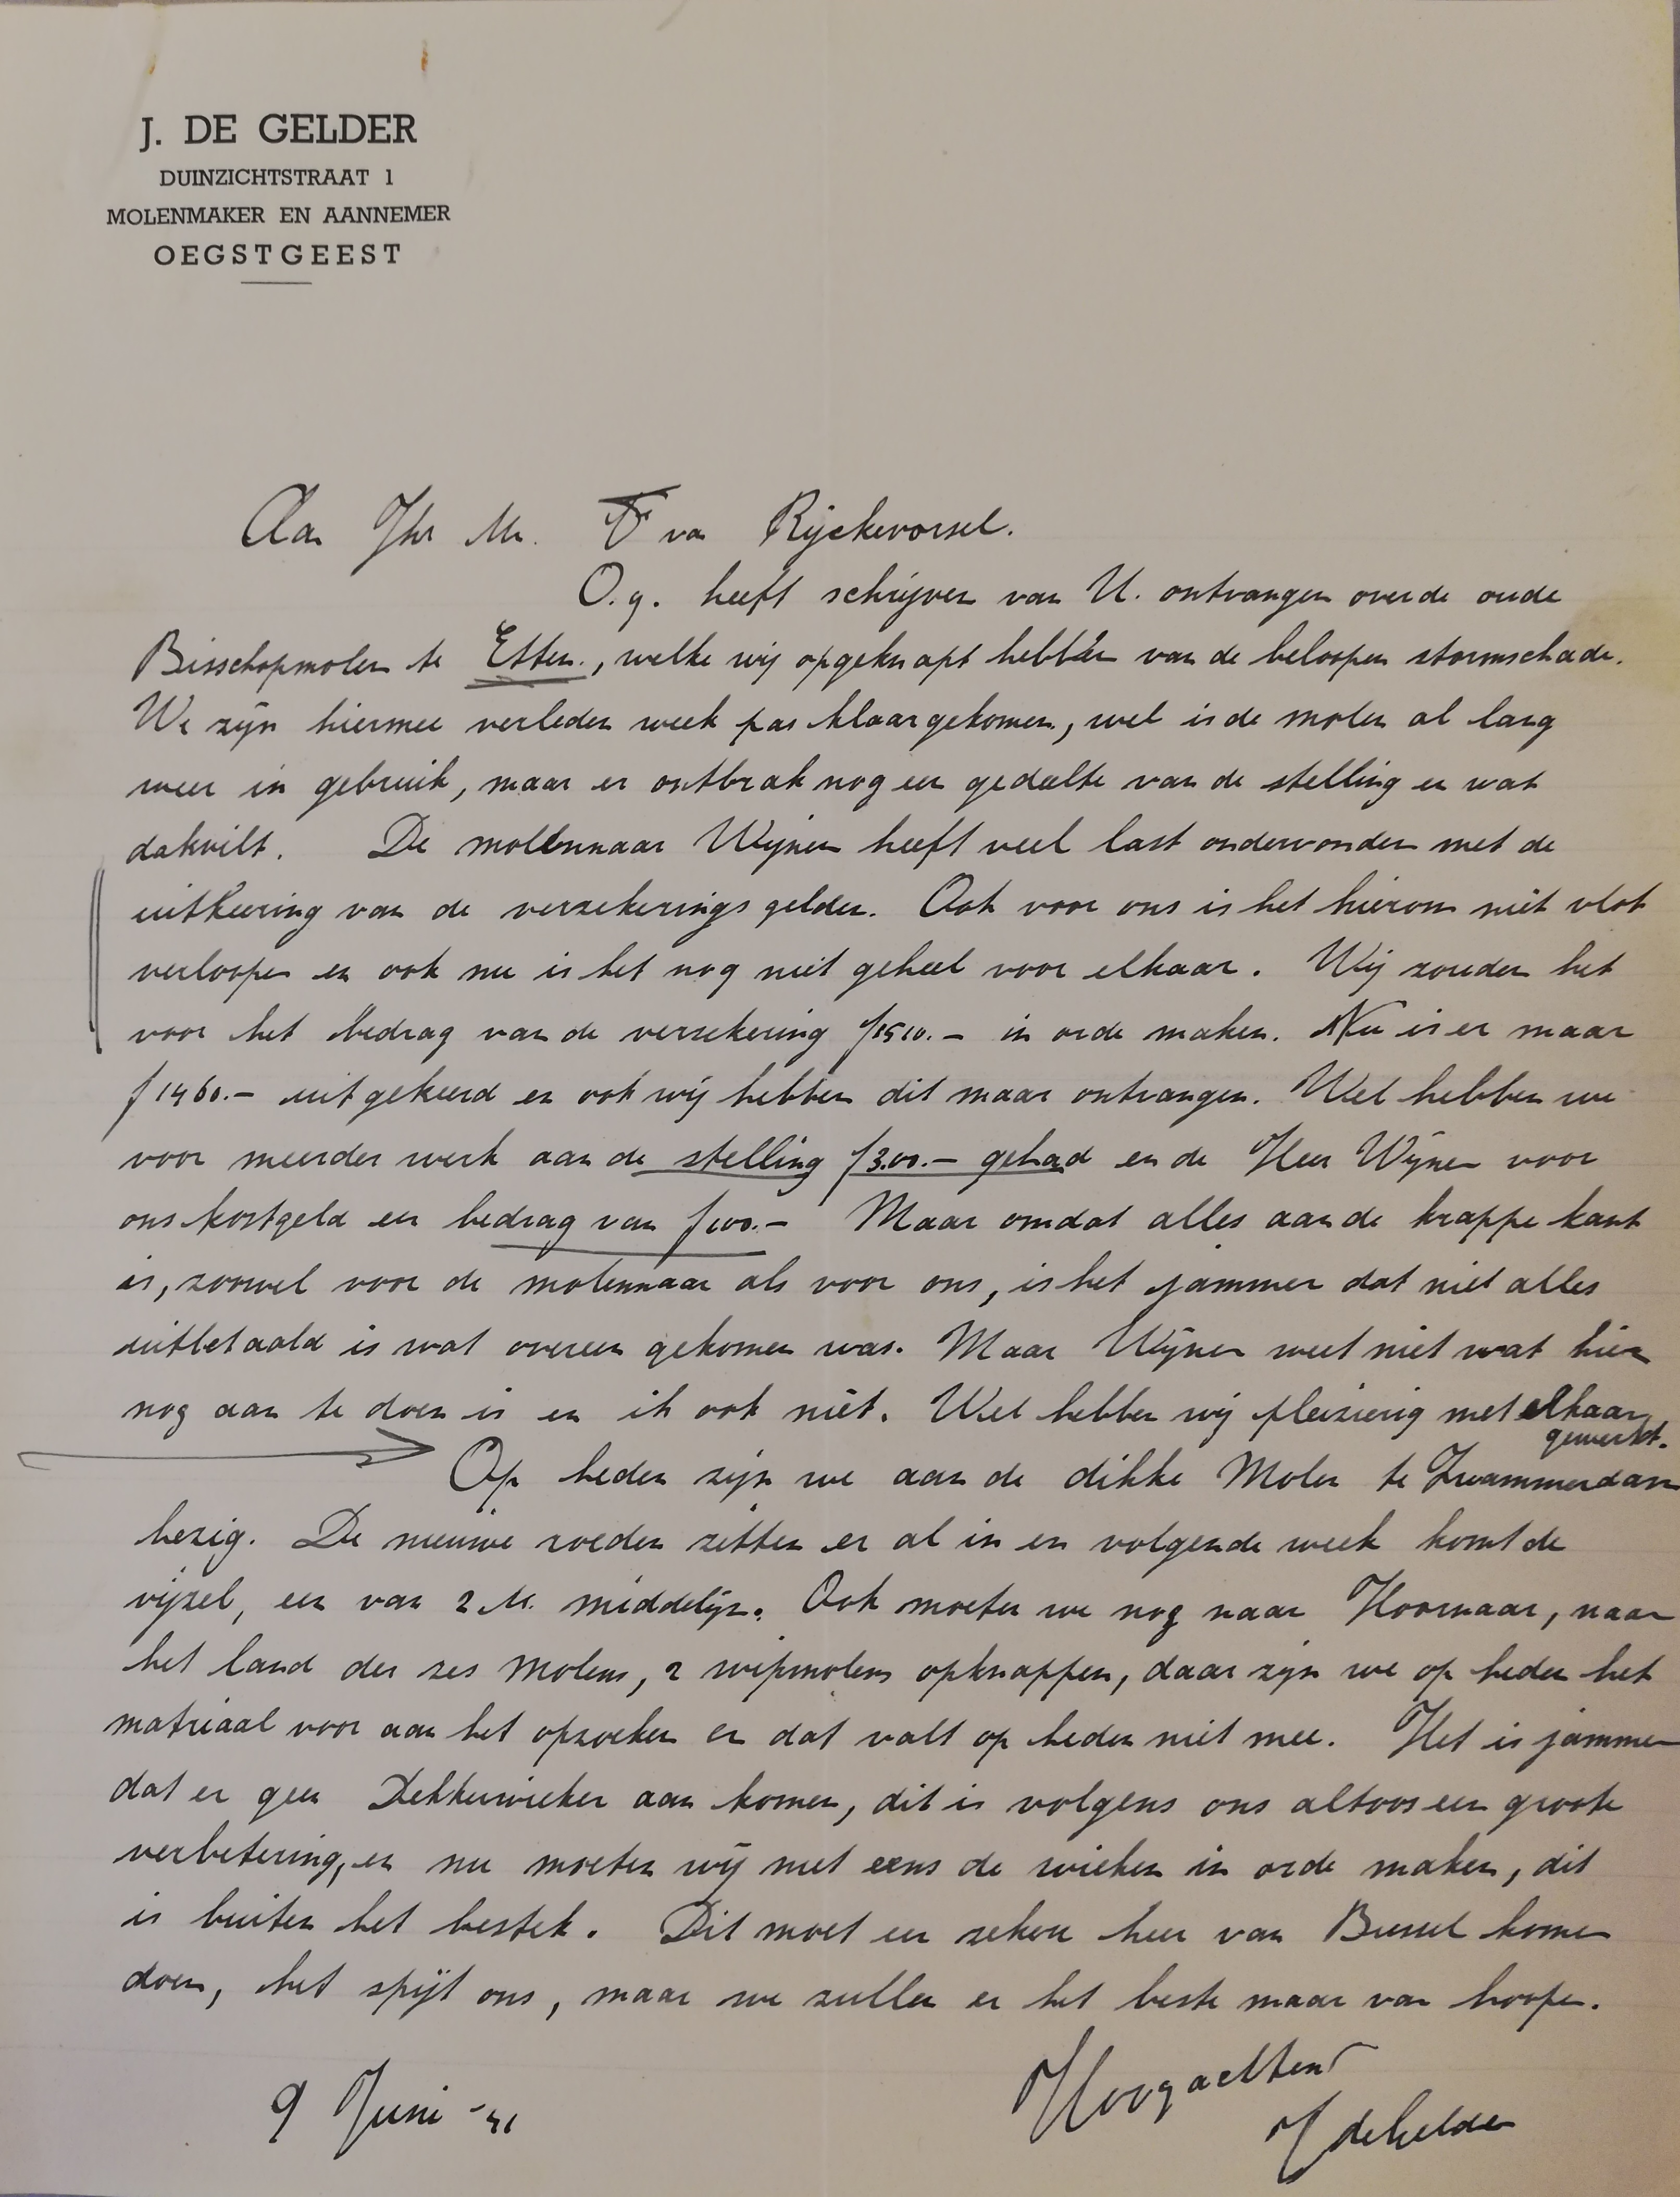 J. DE GELDER
DUINZICHTSTRAAT 1
MOLENMAKER EN AANNEMER
OEGSTGEEST
Aan Jhr Mr. F van Rijckevorsel.
O.g. heeft schrijven van U. ontvangen over de oude
Bisschopmolen te Etten., welke wij opgeknapt hebben van de beloopen stormschade.
We zijn hiermee verleden week pas klaargekomen, wel is de molen al lang
weer in gebruik, maar er ontbrak nog een gedeelte van de stelling en wat
dakvilt. De mollennaar Wijnen heeft veel last ondervonden met de
uitkeering van de verzekerings gelden. Ook voor ons is het hierom niet vlot
verloopen en ook nu is het nog niet geheel voor elkaar. Wij zouden het
voor het bedrag van de verzekering f1510.- in orde maken. Nu is er maar
f 1460.- uitgekeerd en ook wij hebben dit maar ontvangen. Wel hebben we
voor meerder werk aan de stelling f3.00.- gehad en de Heer Wijnen voor
ons kostgeld een bedrag van f100.- Maar omdat alles aan de krappe kant
is, zoowel voor de molennaar als voor ons, is het jammer dat niet alles
uitbetaald is wat overeen gekomen was. Maar Wijnen weet niet wat hier
nog aan te doen is en ik ook niet. Wel hebben wij pleizierig met elkaar
gewerkt.
Op heden zijn we aan de dikke Molen te Zwammerdam
bezig. De nieuwe roeden zitten er al in en volgende week komt de
vijzel, een van 2 M. middelijn. Ook moeten we nog naar Hoornaar, naar
het land der zes Molens, 2 wipmolens opknappen, daar zijn we op heden het
matriaal voor aan het opzoeken en dat valt op heden niet mee. Het is jammer
dat er geen Dekkerwieken aan komen, dit is volgens ons altoos een groote
verbetering, en nu moeten wij niet eens de wieken in orde maken, dit
is buiten het bestek. Dit moet een zekere heer van Bussel komen
doen, het spijt ons, maar we zullen er het beste maar van hoopen.
Hoogachtend
J de Gelder
9 Juni -41